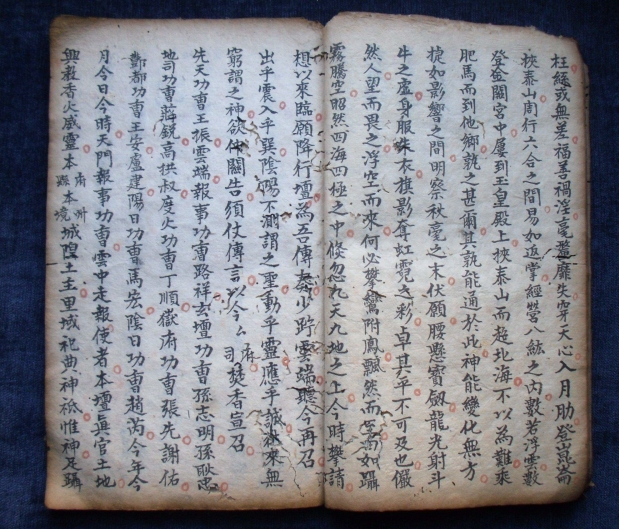 枉經或無差福善禍淫毫釐靡失穿天心入月肋登崑崙
挾泰山周行六合之間易如返掌經營八紘之內數若浮雲數
登金闕宮中屢到玉皇殿上挾泰山而超北海不以為難乘
肥馬而到他鄉孰之甚爾其孰能通於此神能變化無方
捷如影響之間明察秋毫之末伏願腰懸寶劔龍光射斗
牛之虛身服朱衣旗影奪虹霓之彩卓其乎不可及也儼
然人望而畏之浮空而來何必攀鸞附鳳飄然而至若如躡
霧騰空昭然四海四極之中倐忽九天九地之上今時攀請
想以來臨願降行壇為吾傳奏少跨雲端聽今再召
出乎震入乎巽陰陽不測謂之聖動乎靈應乎誠往來無
窮謂之神欲伸關告須仗傳言以今厶 府司焚香宣召
先天功曹王振雲端報事功曹路祥玄壇功曹孫志明孫耿忠
地司功曹蔣銳高拱叔度火功曹丁順嶽府功曹張先謝佑
酆都功曹王安盧建陽日功曹馬宏陰日功曹趙滿今年今
月今日今時天門報事功曹雲中走報使者本壇真官土地
興教香火威靈本府州縣本境城隍土主里域祀典神祗惟神足躡